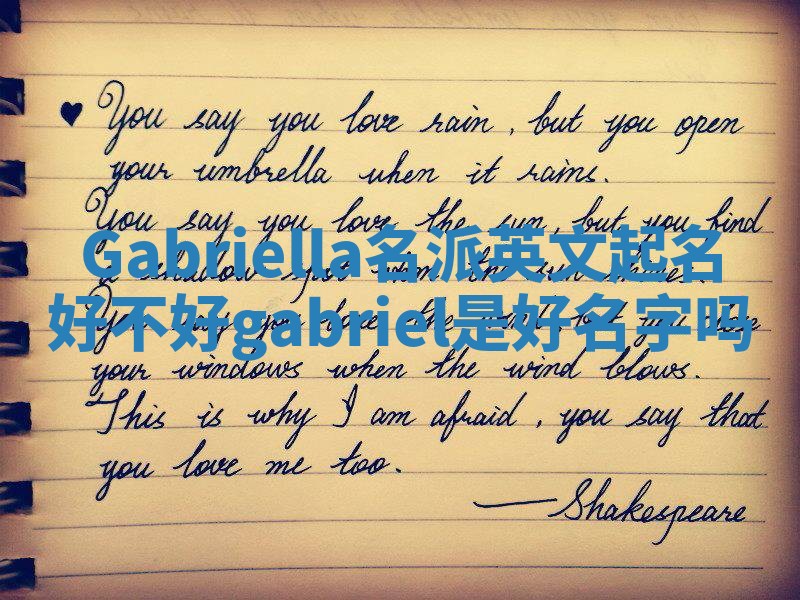 ♥ You say you love rain, but you open
your umbrella when it rains.
You say you love the sun, but you find
a shadow spot when the sun shines.
Gabriella名派英文起名
You say you love the wind, but you close
好不好gabriel是好名字吗
your windows when the wind blows.
This is why I am afraid, you say that
you love me too.
—Shakespeare